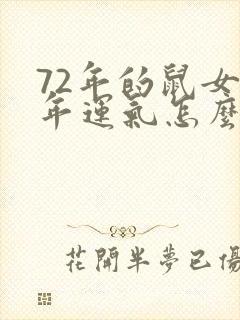 72年的鼠女
年運氣怎麼
花開半夢已傷